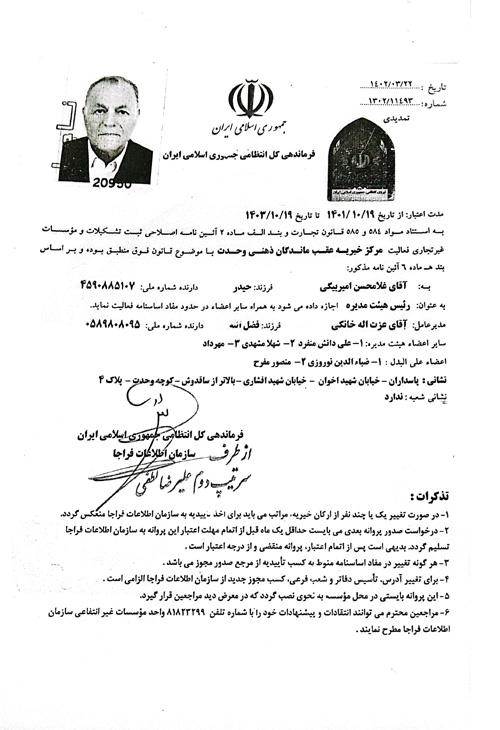 تاریخ : ۱۴۰۲/۰۳/۲۲
شماره: ۱۳۰۲/۱۱۴۹۳
تمدیدی
جمهوری اسلامی ایران
فرماندهی کل انتظامی جمهوری اسلامی ایران
20950
مدت اعتبار: از تاریخ ۱۴۰۱/۱۰/۱۹ تا تاریخ ۱۴۰۳/۱۰/۱۹
به استناد مواد ۵۸۴ و ۵۸۵ قانون تجارت و بند الف ماده ۲ آئین نامه اصلاحی ثبت تشکیلات و مؤسسات
غیرتجاری فعالیت مرکز خیریه عقب ماندگان ذهنی وحدت با موضوع قانون فوق منطبق بوده و بر اساس
بند هـ ماده ۶ آئین نامه مذکور:
به: آقای غلامحسن امیربیگی فرزند: حیدر دارنده شماره ملی: ۴۵۹۰۸۸۵۱۰۷
به عنوان: رئیس هیئت مدیره اجازه داده می شود به همراه سایر اعضاء در حدود مفاد اساسنامه فعالیت نماید.
مدیرعامل: آقای عزت اله خانکی فرزند: فضل اله دارنده شماره ملی: ۰۵۸۹۸۰۸۰۹۵
سایر اعضاء هیئت مدیره: ۱- علی دانش منفرد ۲- شهلا مشهدی ۳- مهرداد
اعضاء علی البدل : ۱- ضیاء الدین نوروزی ۲- منصور مفرح
نشانی : پاسداران - خیابان شهید اخوان - خیابان شهید افشاری - بالاتر از ساقدوش - کوچه وحدت - پلاک ۴
نشانی شعبه : ندارد
فرماندهی کل انتظامی جمهوری اسلامی ایران
از طرف سازمان اطلاعات فراجا
سرتیپ دوم علیرضا لطفی
تذکرات :
۱- در صورت تغییر یک یا چند نفر از ارکان خیریه، مراتب می باید برای اخذ تاییدیه به سازمان اطلاعات فراجا منعکس گردد.
۲- درخواست صدور پروانه بعدی می بایست حداقل یک ماه قبل از اتمام مهلت اعتبار این پروانه به سازمان اطلاعات فراجا
تسلیم گردد. بدیهی است پس از اتمام اعتبار، پروانه منقضی و از درجه اعتبار است .
۳- هر گونه تغییر در مفاد اساسنامه منوط به کسب تأییدیه از مرجع صدور مجوز می باشد .
۴- برای تغییر آدرس، تأسیس دفاتر و شعب فرعی، کسب مجوز جدید از سازمان اطلاعات فراجا الزامی است .
۵- این پروانه بایستی در محل مؤسسه به نحوی نصب گردد که در معرض دید مراجعین قرار گیرد.
۶- مراجعین محترم می توانند انتقادات و پیشنهادات خود را با شماره تلفن ۸۱۸۲۳۲۹۹ واحد مؤسسات غیر انتفاعی سازمان
اطلاعات فراجا مطرح نمایند .